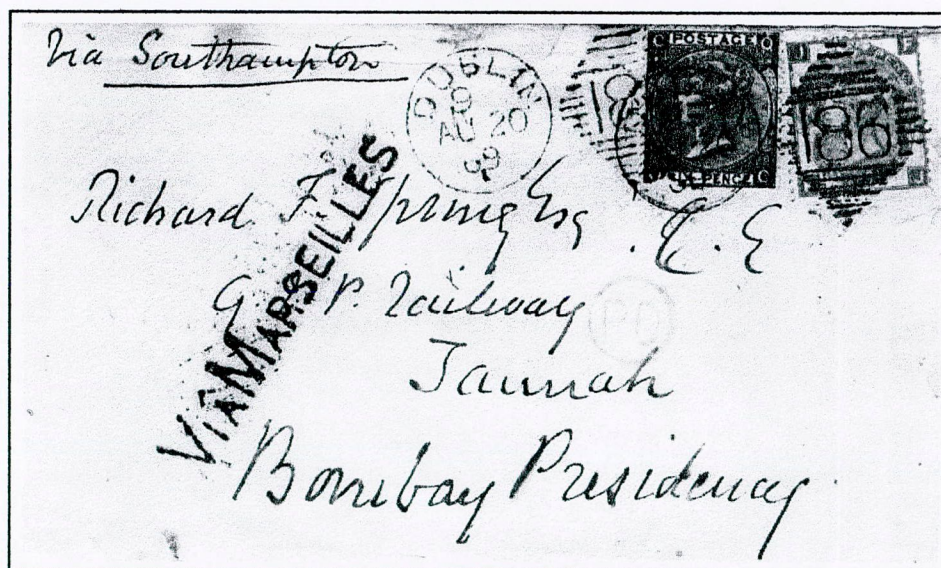 Via Southampton
DUBLIN
AU 20
POSTAGE
SIX PENCE
186
VIA MARSEILLES
Richard F Esq C.E
G P. Railway
PD
Tannah
Bombay Presidency